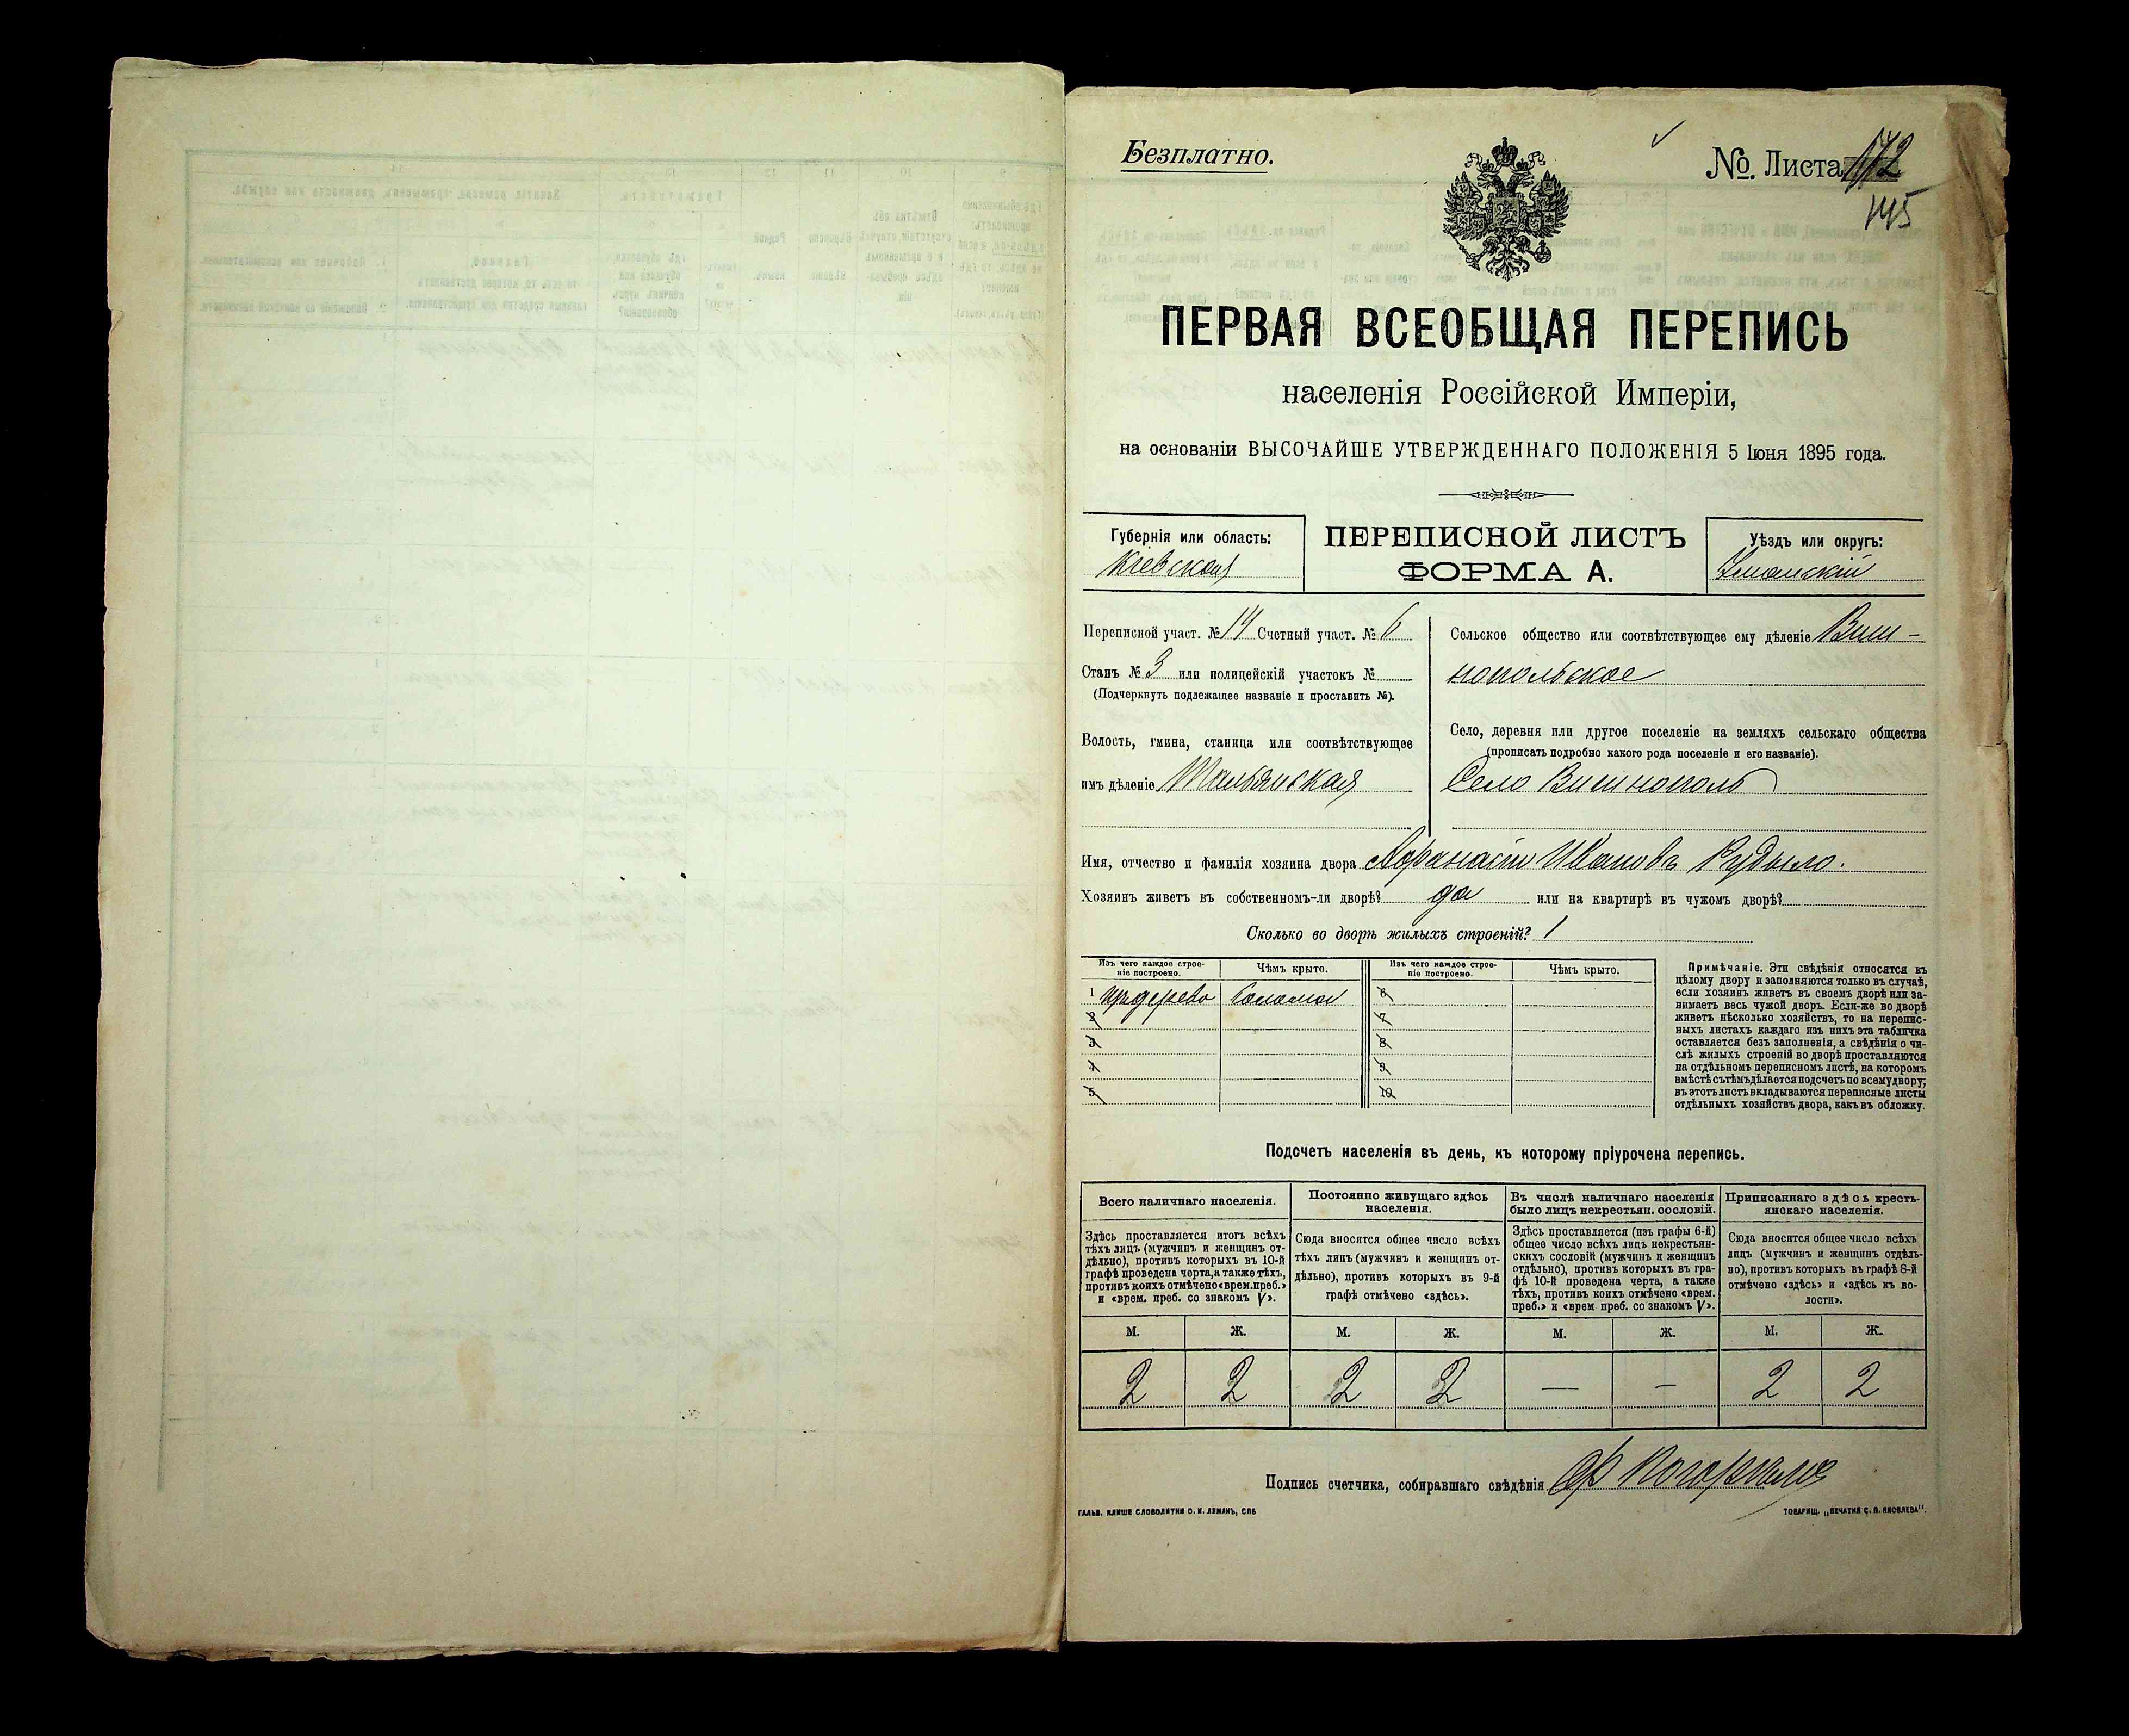 Безплатно.
№. Листа 172
145
ПЕРВАЯ ВСЕОБЩАЯ ПЕРЕПИСЬ
населенія Россійской Имперіи,
на основаніи ВЫСОЧАЙШЕ УТВЕРЖДЕННАГО ПОЛОЖЕНІЯ 5 Іюня 1895 года.
Губернія или область:
Кіевская
ПЕРЕПИСНОЙ ЛИСТЪ
ФОРМА А.
Уѣздъ или округъ:
Уманскій
Переписной участ. № 14 Счетный участ. № 6
Станъ № 3 или полицейскій участокъ №
(Подчеркнуть подлежащее названіе и проставить №).
Волость, гмина, станица или соотвѣтствующее
имъ дѣленіе Тальянская
Сельское общество или соотвѣтствующее ему дѣленіе Виш-
нопольское
Село, деревня или другое поселеніе на земляхъ сельскаго общества
(прописать подробно какого рода поселеніе и его названіе).
Село Вишнополь
Имя, отчество и фамилія хозяина двора Афанасій Ивановъ Кудыло.
Хозяинъ живетъ въ собственномъ-ли дворѣ? да или на квартирѣ въ чужомъ дворѣ?
Сколько во дворѣ жилыхъ строеній? 1
Изъ чего каждое строе-
ніе построено.
Чѣмъ крыто.
Изъ чего каждое строе-
ніе построено.
Чѣмъ крыто.
1 соломой 6
2 7
3 8
4 9
5 10
Примѣчаніе. Эти свѣдѣнія относятся къ
цѣлому двору и заполняются только въ случаѣ,
если хозяинъ живетъ въ своемъ дворѣ или за-
нимаетъ весь чужой дворъ. Если-же во дворѣ
живетъ нѣсколько хозяйствъ, то на перепис-
ныхъ листахъ каждаго изъ нихъ эта табличка
оставляется безъ заполненія, а свѣдѣнія о чи-
слѣ жилыхъ строеній во дворѣ проставляются
на отдѣльномъ переписномъ листѣ, на которомъ
вмѣстѣ съ тѣмъ дѣлается подсчетъ по всему двору;
въ этотъ листъ вкладываются переписные листы
отдѣльныхъ хозяйствъ двора, какъ въ обложку.
Подсчетъ населенія въ день, къ которому пріурочена перепись.
Всего наличнаго населенія.
Здѣсь проставляется итогъ всѣхъ
тѣхъ лицъ (мужчинъ и женщинъ от-
дѣльно), противъ которыхъ въ 10-й
графѣ проведена черта, а также тѣхъ,
противъ коихъ отмѣчено «врем. преб.»
и «врем. преб. со знакомъ V».
Постоянно живущаго здѣсь
населенія.
Сюда вносится общее число всѣхъ
тѣхъ лицъ (мужчинъ и женщинъ от-
дѣльно), противъ которыхъ въ 9-й
графѣ отмѣчено «здѣсь».
Въ числѣ наличнаго населенія
было лицъ некрестьян. сословій.
Здѣсь проставляется (изъ графы 6-й)
общее число всѣхъ лицъ некрестьян-
скихъ сословій (мужчинъ и женщинъ
отдѣльно), противъ которыхъ въ гра-
фѣ 10-й проведена черта, а также
тѣхъ, противъ коихъ отмѣчено «врем.
преб.» и «врем преб. со знакомъ V».
Приписаннаго здѣсь кресть-
янскаго населенія.
Сюда вносится общее число всѣхъ
лицъ (мужчинъ и женщинъ отдѣль-
но), противъ которыхъ въ графѣ 8-й
отмѣчено «здѣсь» и «здѣсь къ во-
лости».
М. Ж. М. Ж. М. Ж. М. Ж.
2 2 2 2 — — 2 2
Подпись счетчика, собиравшаго свѣдѣнія
ГАЛЬВ. КЛИШЕ СЛОВОЛИТНИ О. И. ЛЕМАНЪ, СПБ
ТОВАРИЩ. „ПЕЧАТНЯ С. П. ЯКОВЛЕВА".